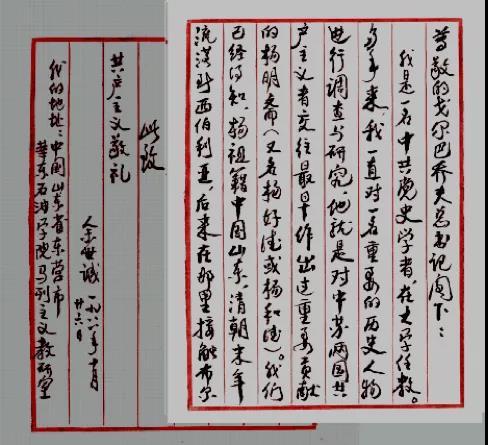 尊敬的戈尔巴乔夫总书记阁下：
我是一名中共党史学者，在大学任教。
多年来，我一直对一名重要的历史人物
进行调查与研究，他就是对中苏两国共
产主义者交往最早作出过重要贡献
的杨明斋（又名杨好德或杨和德）。我们
已经得知，杨祖籍中国山东，清朝末年
流落到西伯利亚，后来在那里接触布尔
此致
共产主义敬礼
余世诚 一九八六年十一月
廿六日
我的地址：中国山东省东营市
华东石油学院马列主义教研室